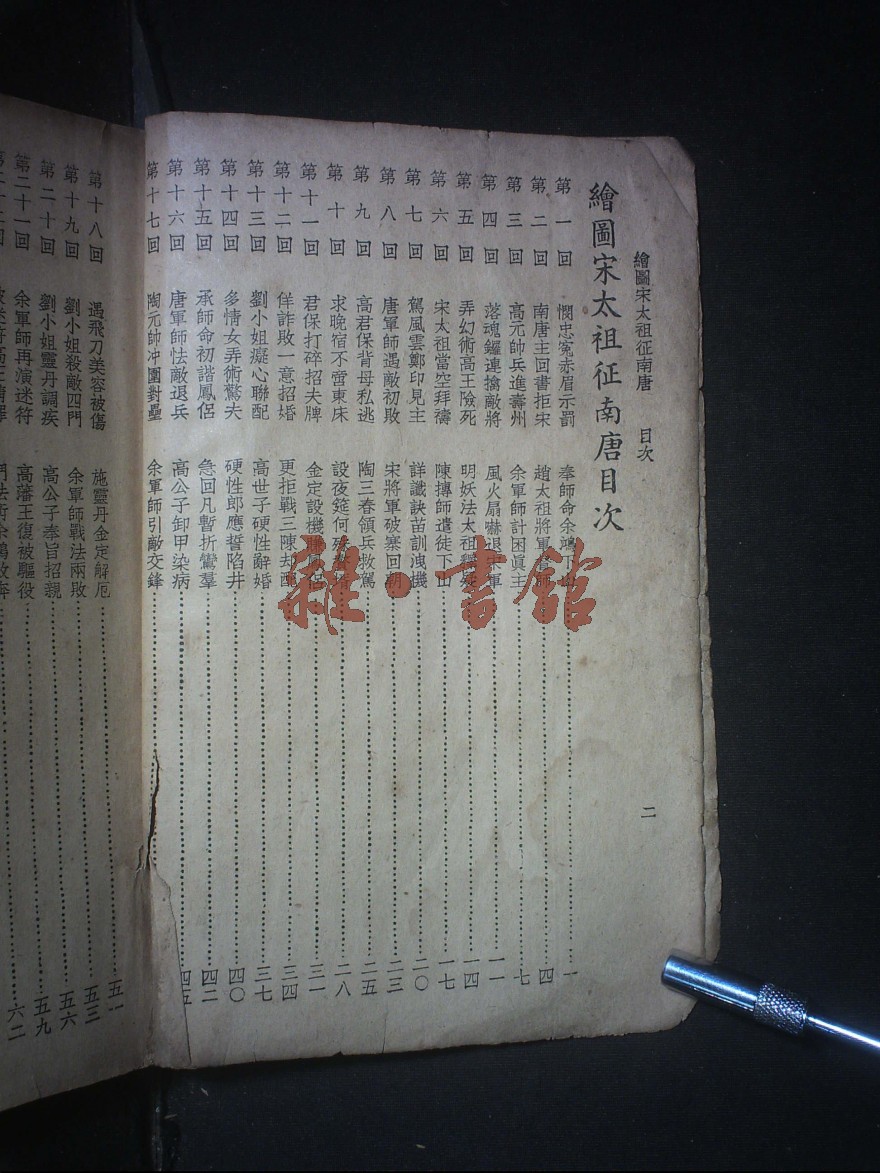 繪圖宋太祖征南唐 目次 二
繪圖宋太祖征南唐目次
第一回 憫忠冤赤眉示罰 奉師命余鴻下山 一
第二回 南唐主回書拒宋 趙太祖將軍 四
第三回 高元帥兵進壽州 余軍師計困眞主 七
第四回 落魂鑼連擒敵將 風火扇嚇退宋軍 一一
第五回 弄幻術高王險死 明妖法太祖 一四
第六回 宋太祖當空拜禱 陳摶師遣徒下山 一七
第七回 駕風雲鄭印見主 詳讖訣苗訓洩機 二〇
第八回 唐軍師遇敵初敗 宋將軍破寨回朝 二三
第九回 高君保背母私逃 陶三春領兵救駕 二五
第十回 求晚宿不啻東床 設夜筵何 二八
第十一回 君保打碎招夫牌 金定設機 鳳侶 三一
第十二回 佯詐敗一意招婚 更拒戰三陳却配 三四
第十三回 劉小姐癡心聯配 高世子硬性辭婚 三七
第十四回 多情女弄術驚夫 硬性郎應誓陷井 四〇
第十五回 承師命初諧鳳侶 急回凡暫折鸞羣 四二
第十六回 唐軍師怯敵退兵 高公子卸甲染病 四五
第十七回 陶元帥冲圍對壘 余軍師引敵交鋒
第十八回 遇飛刀美容被傷 施靈丹金定解厄 五一
第十九回 劉小姐殺敵四門 余軍師戰法兩敗 五三
第二十回 劉小姐靈丹調疾 高公子奉旨招親 五六
第二十一回 余軍師再演迷符 高藩王復被驅役 五九
六二
雜·書館